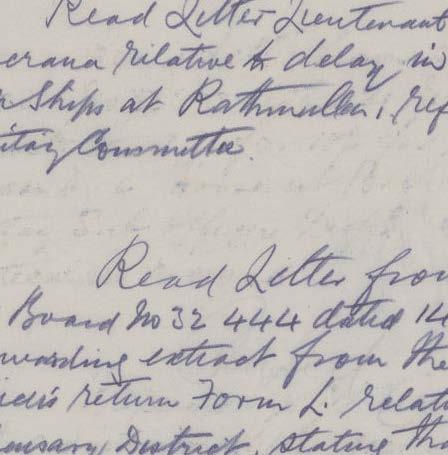 Read Letter Lieutenant
erana relative to delay in
Ships at Rathmullen, ref
itary Committee.
Read Letter from
Board No 32 444 dated 14
warding extract from the
return Form L. relat
ensary District, stating th